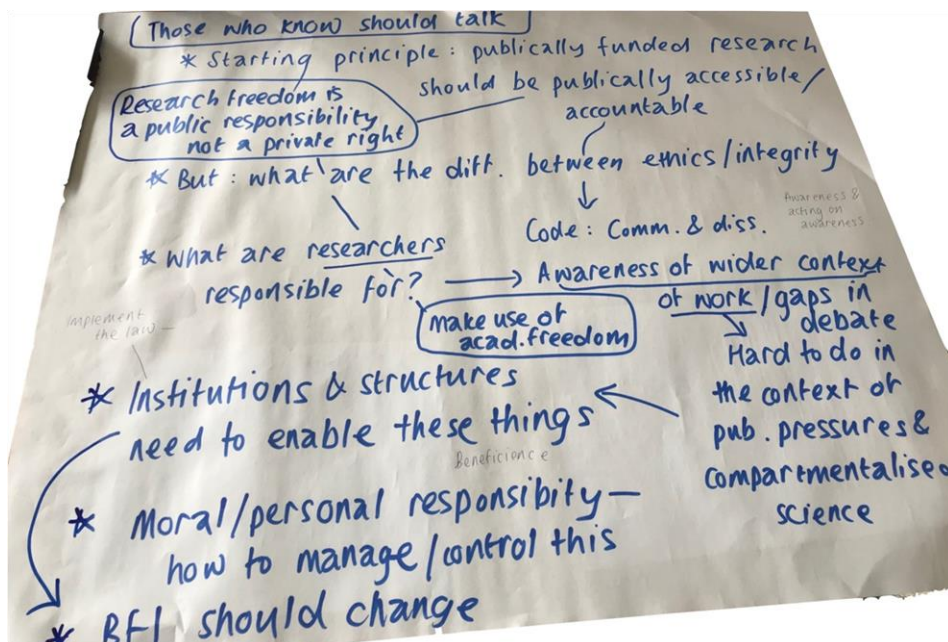 Those who know should talk
* Starting principle: publically funded research
should be publically accessible/
accountable
Research freedom is
a public responsibility
not a private right
* But: what are the diff. between ethics/integrity
Code: Comm. & diss.
Awareness &
acting on
awareness
* What are researchers
responsible for?
Awareness of wider context
of work/gaps in
debate
make use of
acad. freedom
Hard to do in
the context of
pub. pressures &
compartmentalised
science
Implement
the law –
* Institutions & structures
need to enable these things
Beneficience
* Moral/personal responsibity –
how to manage/control this
* BFI should change